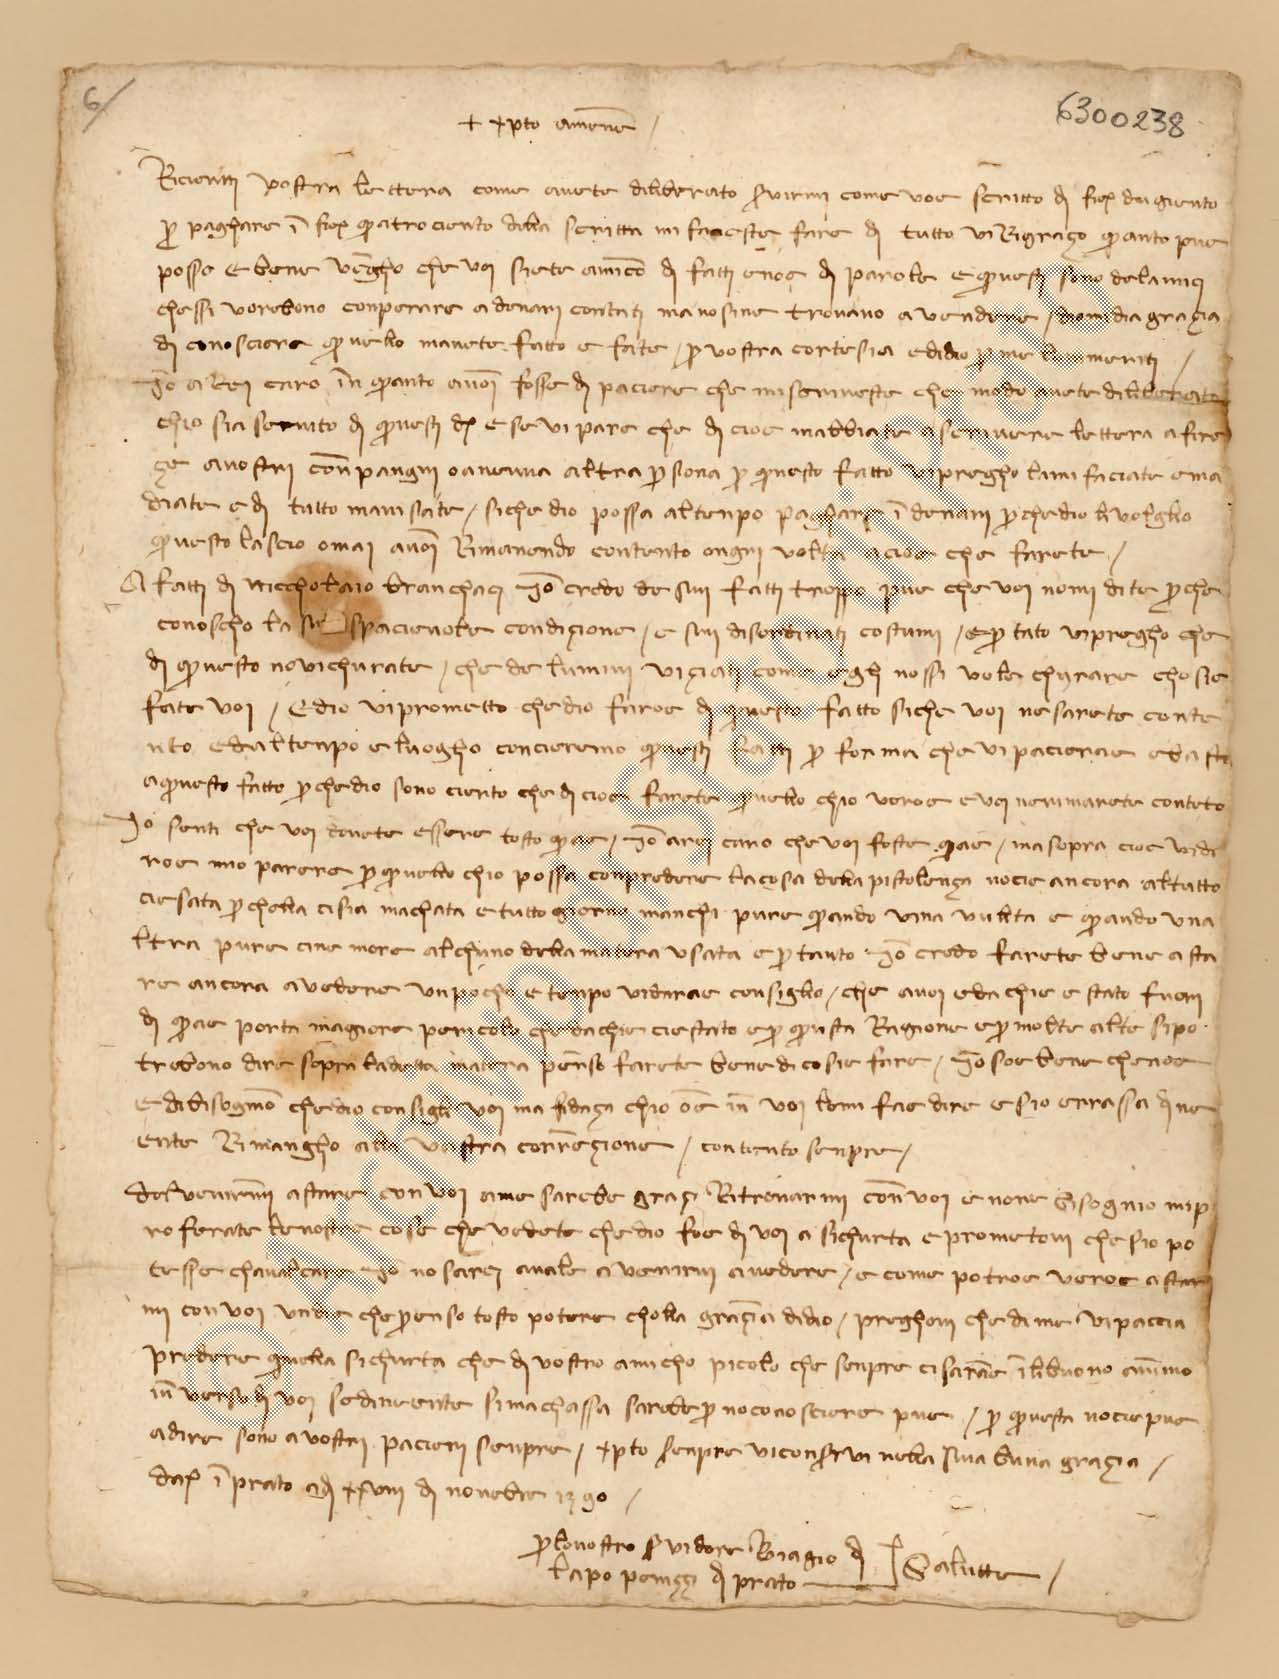 6
6300238
+ Xpto amene /
Ricieveti vostra lettera come avete diliberato servirmi come voe scritto di fior dugiento
per paghare i fior quatrociento della scritta mi faceste fare di tutto vi Rigraço quanto pue
posso e bene vegho che voi siete amico di fatti enoe di parole e questi sono delamici
chessi vorebono conperare a denari contati ma nosine trovano a vendere / diomi dia graçia
di conosciere quello mavete fatto e fate / per vostra cortesia edidio per me
Io arei caro in quanto avoi fosse di paciere che mi scriveste che modo avete diliberato
chio sia servito di questi dr e se vi pare che di cioe mabbiate a scrivere lettera a fire
çe avostri conpangni o averuna altra persona per questo fatto vi pregho lami faciate e ma
diate e di tutto mavisate / siche dio possa altenpo paghare i denari perchedio li volglio
questo lascio omai avoi Rimanendo contento ongni volta acioe che farete /
A fatti di Niccholaio branchaci Io credo de sui fatti troppo pue che voi nomi dite perche
conoscho la spacievole condiçione / e sui disordinati costumi / e per tato vi pregho che
di questo no vi churate / che de lumini viçiati come egli nossi vole churare chosie
fate voi / Edio vi prometto chedio faroe di questo fatto siche voi ne sarete conte
nto edaltenpo e luogho concieremo questi fatti per forma che vi pacierae e basti
aquesto fatto perchedio sono cierto che di cioe farete quello chio voroe e voi nerimarete conteto
Io senti che voi dovete essere tosto quae / Io arei caro che voi foste quae / ma sopra cioe vidi
roe mio parere per quello chio possa conpredere la cosa della pistolença nocie ancora altutto
ciesata perchella cisia machata e tutto giorno manchi pure quando una vulta e quando una
ltra pure cine more alchuno della matera usata e per tanto Io credo farete bene a sta
re ancora a vedere un pocho e tenpo vidarae consiglio / che avoi eda chie e stato fuori
di quae porta magiore pericolo che da chie ciestato e per questa Ragione e per molte alte sipo
trebono dire sopra ladetta matera penso farete bene di cosie fare / Io soe bene chenoe
e dibisogno chedio consigli voi ma fidaça chio oe in voi lomi fae dire e sio errassa di ne
ente Rimangho alla vostra correçione / contento senpre /
Del venirmi a stare con voi ame sarebe graçi Ritrovarmi con voi e none bisognio mi p
roferate le vostre cose che vedete chedio foe di voi a sichurta e prometovi che sio po
tesse chavalcare Io no sarei avale a venirvi avedere / e come potroe veroe astar
mi con voi un die che penso tosto potere cholla graçia didio / preghovi che di me vi paccia
predere quella sichurta che di vostro amicho picolo che senpre ci sarae ilbuono animo
in verso di voi sedineente simachassa sarebe per noconosciere pue / per questa nocie pue
adire sono a vostri pacieri senpre / Xpto senpre vi conservi nella sua buna graçia /
dat i prato adi XXVIII di novebre 1390 /
per lovostro servidore Biagio di
lapo di prato
Salutte /